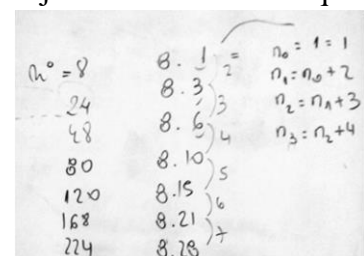 n° = 8
24
48
80
120
168
224
8 . 1
8 . 3
8 . 6
8 . 10
8 . 15
8 . 21
8 . 28
2 =
3
4
5
6
7
n₀ = 1 = 1
n₁ = n₀ + 2
n₂ = n₁ + 3
n₃ = n₂ + 4